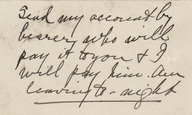 Send my account by
bearer, who will
pay it to you & I
will pay him. Am
leaving to-night